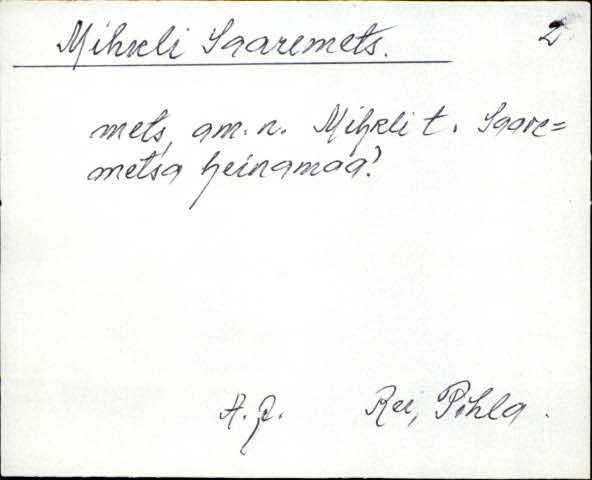 Mihkli Saaremets. 2
mets, am. n. Mihkli t. Saare=
metsa heinamaa?
A. P. Ree, Pihla.